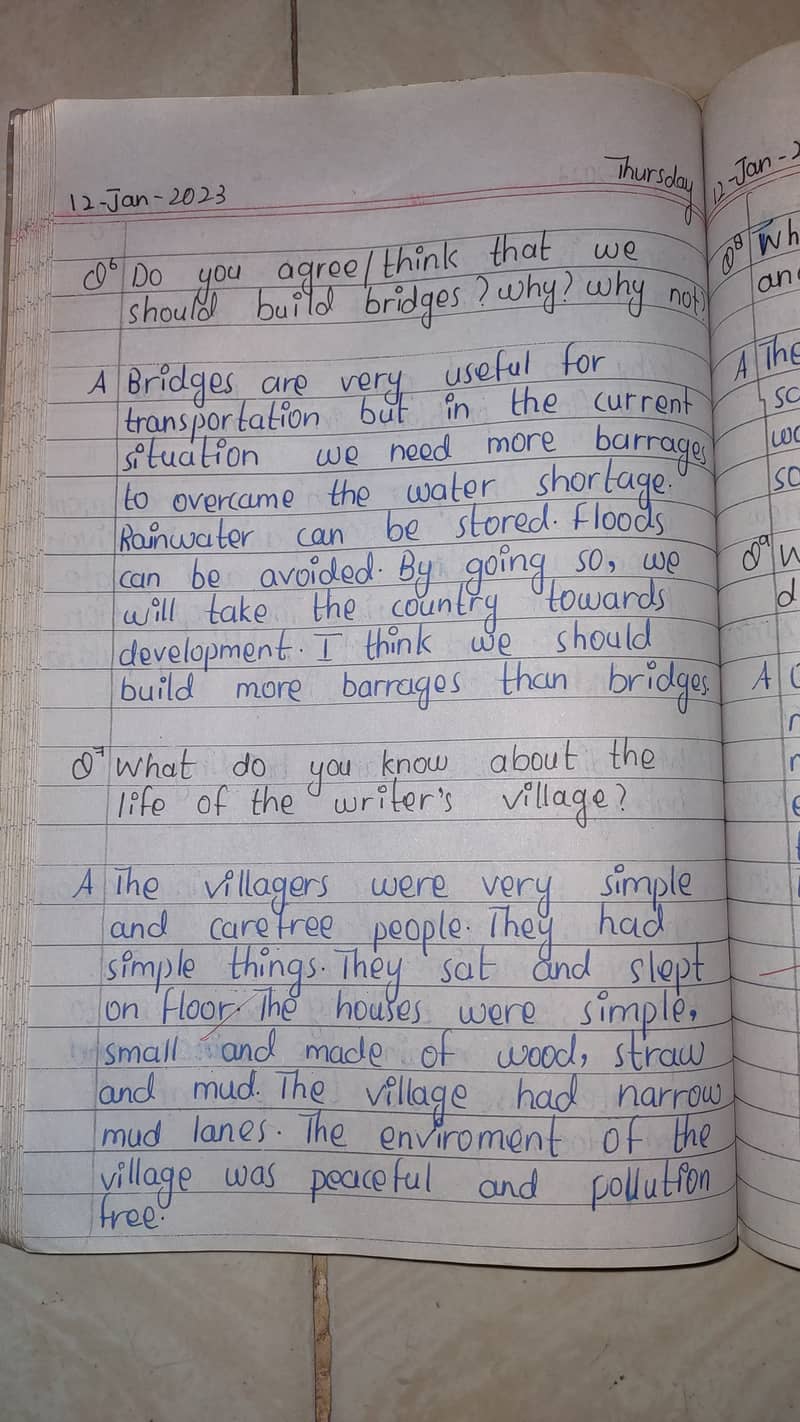 12-Jan-2023 Thursday
Q6 Do you agree/think that we
should build bridges? Why? Why not
A Bridges are very useful for
transportation but in the current
situation we need more barrages
to overcame the water shortage.
Rainwater can be stored. Floods
can be avoided. By going so, we
will take the country towards
development. I think we should
build more barrages than bridges.
Q7 What do you know about the
life of the writer's village?
A The villagers were very simple
and carefree people. They had
simple things. They sat and slept
on floor. The houses were simple,
small and made of wood, straw
and mud. The village had narrow
mud lanes. The enviroment of the
village was peaceful and pollution
free.
12-Jan-2
Q8 Wh
an
A The
sc
wo
so
Q9 W
d
A